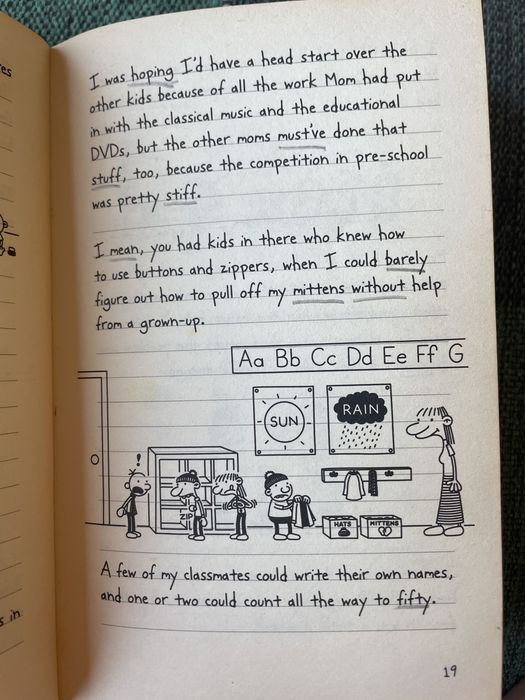 I was hoping I'd have a head start over the
other kids because of all the work Mom had put
in with the classical music and the educational
DVDs, but the other moms must've done that
stuff, too, because the competition in pre-school
was pretty stiff.
I mean, you had kids in there who knew how
to use buttons and zippers, when I could barely
figure out how to pull off my mittens without help
from a grown-up.
Aa Bb Cc Dd Ee Ff G
SUN
RAIN
!
ZIP
HATS
MITTENS
A few of my classmates could write their own names,
and one or two could count all the way to fifty.
s in
19